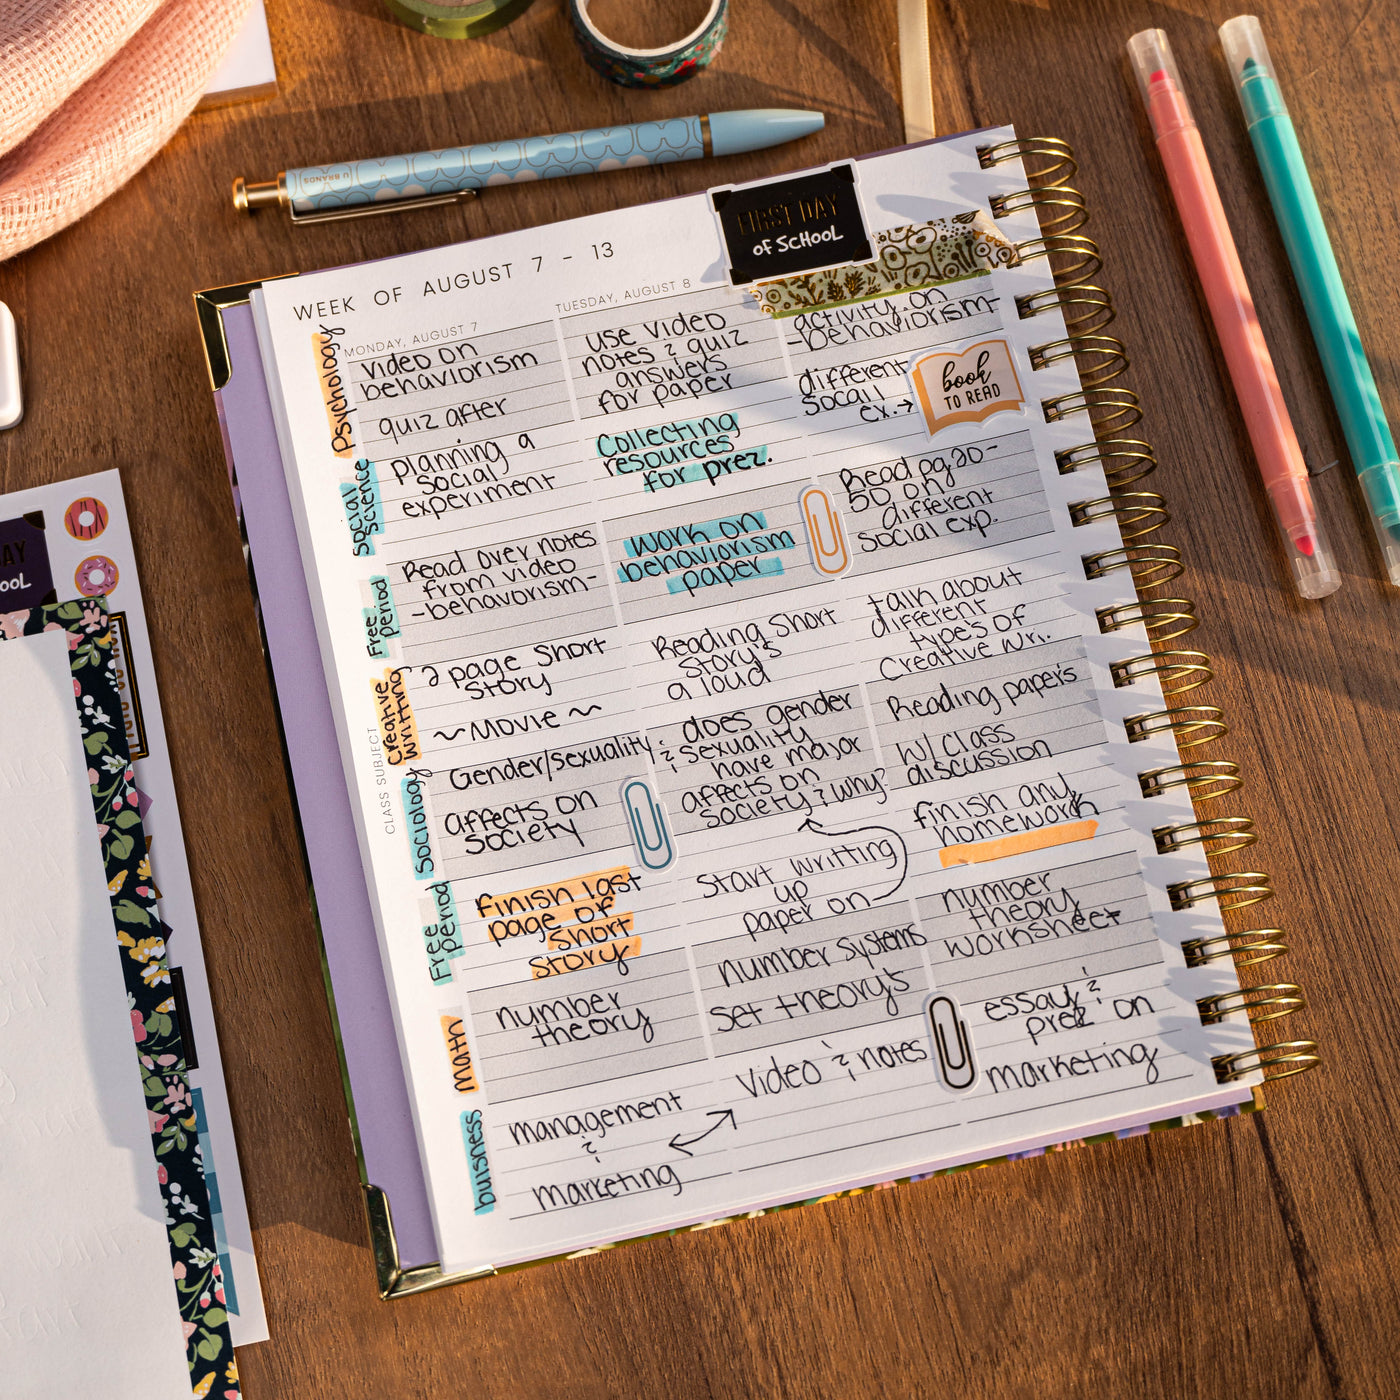 U BRANDS
FIRST DAY
OF SCHOOL
WEEK OF AUGUST 7 - 13
MONDAY, AUGUST 7
TUESDAY, AUGUST 8
CLASS SUBJECT
Psychology
video on
behaviorism
quiz after
use video
notes & quiz
answers
for paper
activity on
-behaviorism-
different
socail
ex.→
book
TO READ
Social
Science
planning a
social
experiment
Collecting
resources
for prez.
Read pg 20-
50 on
different
social exp.
Free
Period
Read over notes
from video
-behavorism-
work on
behaviorism
paper
talk about
different
types of
Creative wri.
Creative
writting
2 page short
story
~Movie~
Reading short
story's
a loud
Reading paper's
w/ class
discussion
Sociology
Gender/sexuality
affects on
society
does gender
& sexuality
have major
affects on
society & why?
finish any
homework
Free
period
finish last
page of
short
story
start writting
up
paper on
number
theory
worksheet
math
number
theory
number systems
set theory's
essay &
prez on
marketing
buisness
management
&
marketing
video & notes
AY
OOL